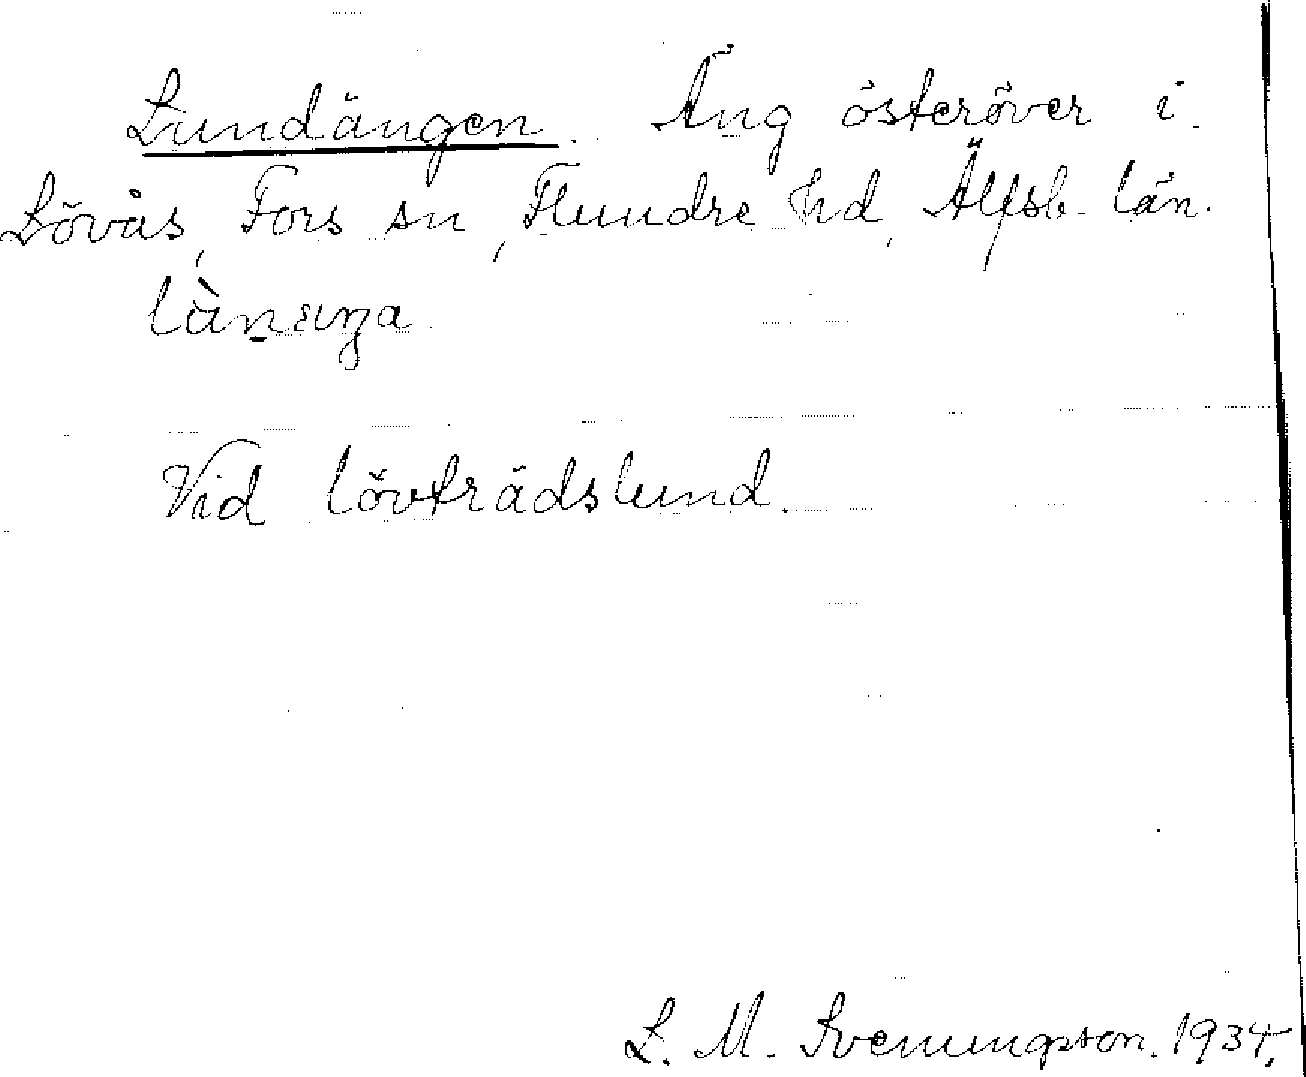 Lundängen. Äng österöver i
Lövås, Fors sn, Flundre hd, Älfsb. län.
Vid lövträdslund.
L. M. Svenungsson. 1934.